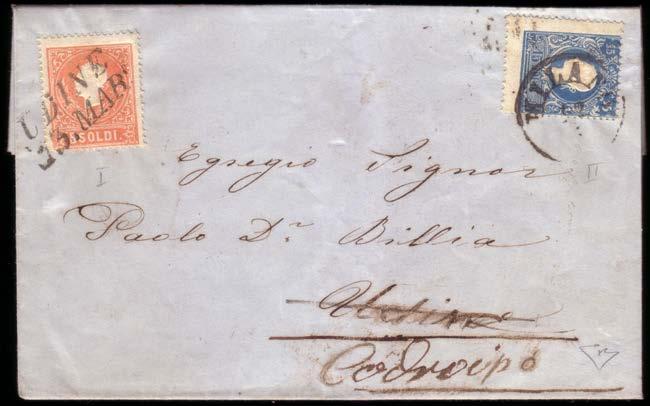 UDINE
23. MAR.
SOLDI
15
MILANO
I
II
Egregio Signor
Paolo Dr. Billia
Udine
Codroipo